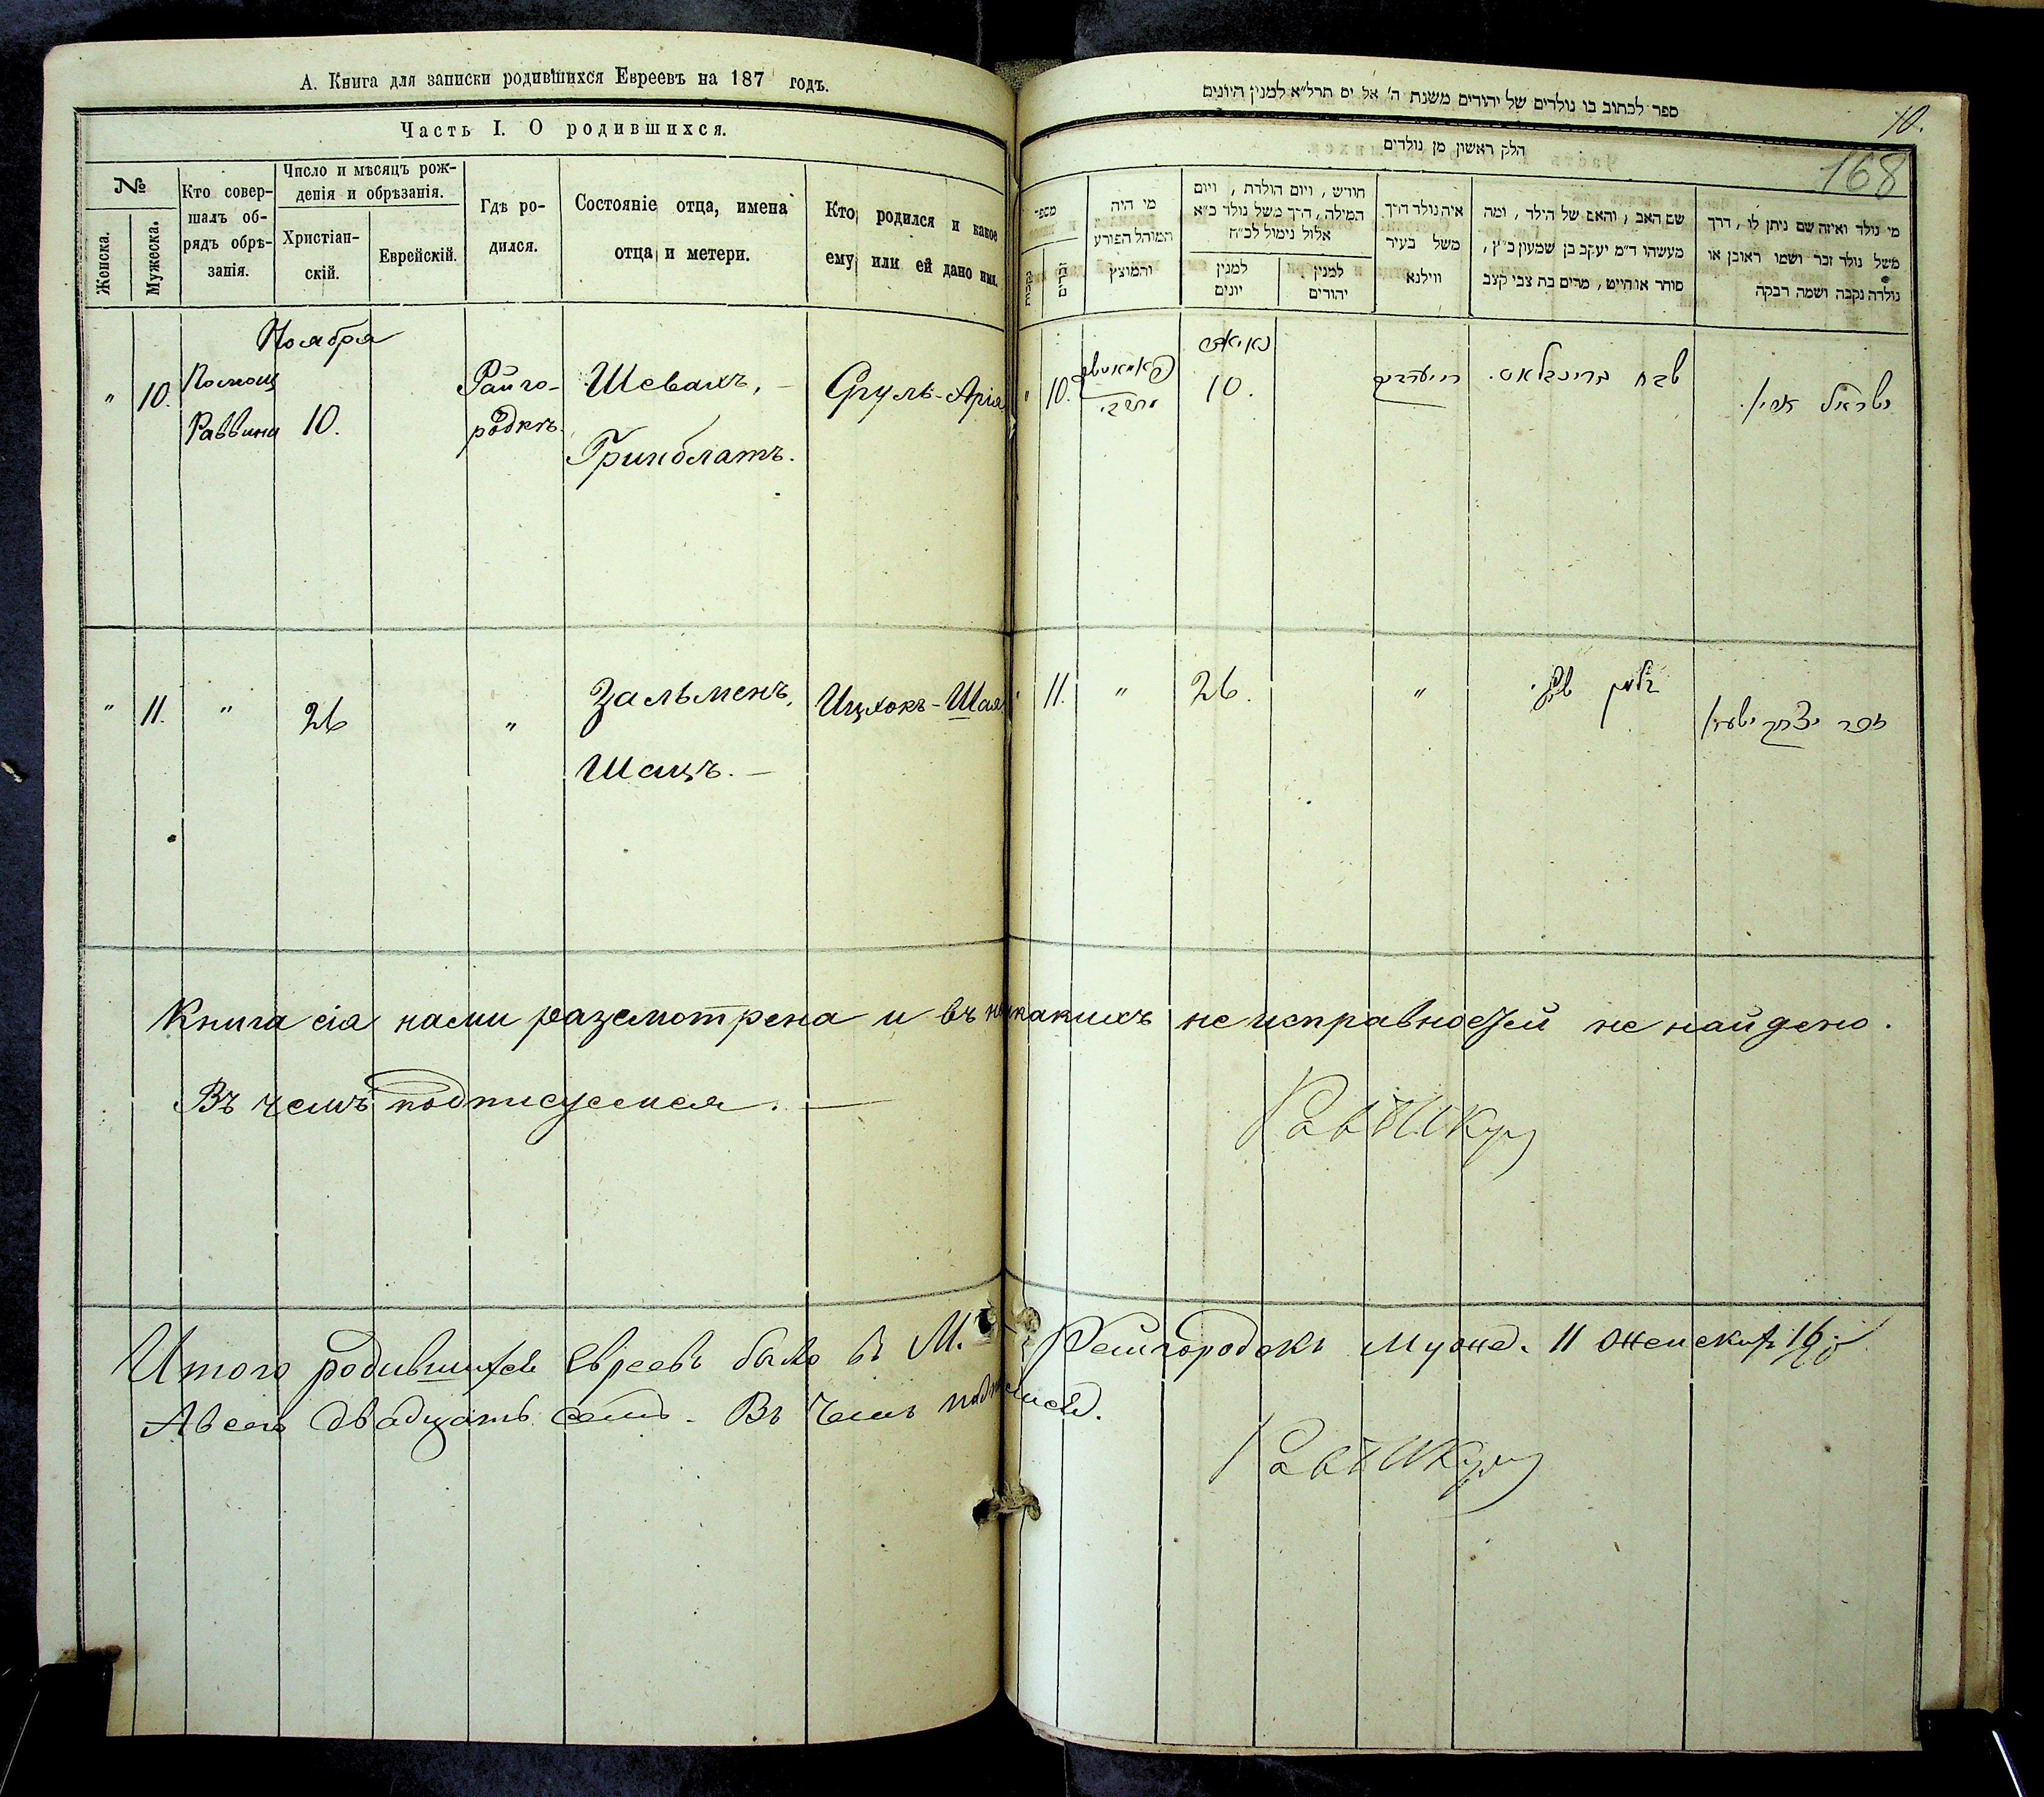 А. Книга для записки родившихся Евреевъ на 187 годъ.
Часть I. О родившихся.
№
Женска.
Мужеска.
Кто совершалъ об-
рядъ обрѣ-
занія.
Число и мѣсяцъ рож-
денія и обрѣзанія.
Христіан-
скій.
Еврейскій.
Гдѣ ро-
дился.
Состояніе отца, имена
отца и метери.
Кто родился и какое
ему или ей дано имя.
Ноября
" 10. Помощ Раввина 10. Райго-
родкъ.
Шевахъ, –
Гринблатъ.
Сруль-Арія
" 11. " 26 " Зальменъ,
Шацъ. –
Ицхокъ-Шая
ספר לכתוב בו נולדים של יהודים משנת ה' אלפים תרל"א למנין היונים
10.
168
חלק ראשון מן נולדים
מספר
נקבות
זכרים
מי היה
המוהל הפורע
והמוצץ
חודש, ויום הולדת, ויום
המילה, דרך משל נולד כ"א
אלול נימול לכ"ח
למנין
יונים
למנין
יהודים
איה נולד דרך
משל בעיר
ווילנא
שם האב, והאם של הילד, ומה
מעשהו ד"מ יעקב בן שמעון כ"ץ,
סוחר או חייט, מרים בת צבי קצב
מי נולד ואיזה שם ניתן לו, דרך
משל נולד זכר ושמו ראובן או
נולדה נקבה ושמה רבקה
" 10. 10. שבח גרינבלאט. ישראל ארי'
" 11. " 26. " זלמן שץ. זכר יצחק ישעי'
Книга сія нами разсмотрена и въ никакихъ неисправностей не найдено.
Въ чемъ подписуемся. —
Итого родившихся евреевъ было въ М. Райгородокъ Мужес. 11 Женскихъ 16
А всего двадцать семь. Въ чемъ